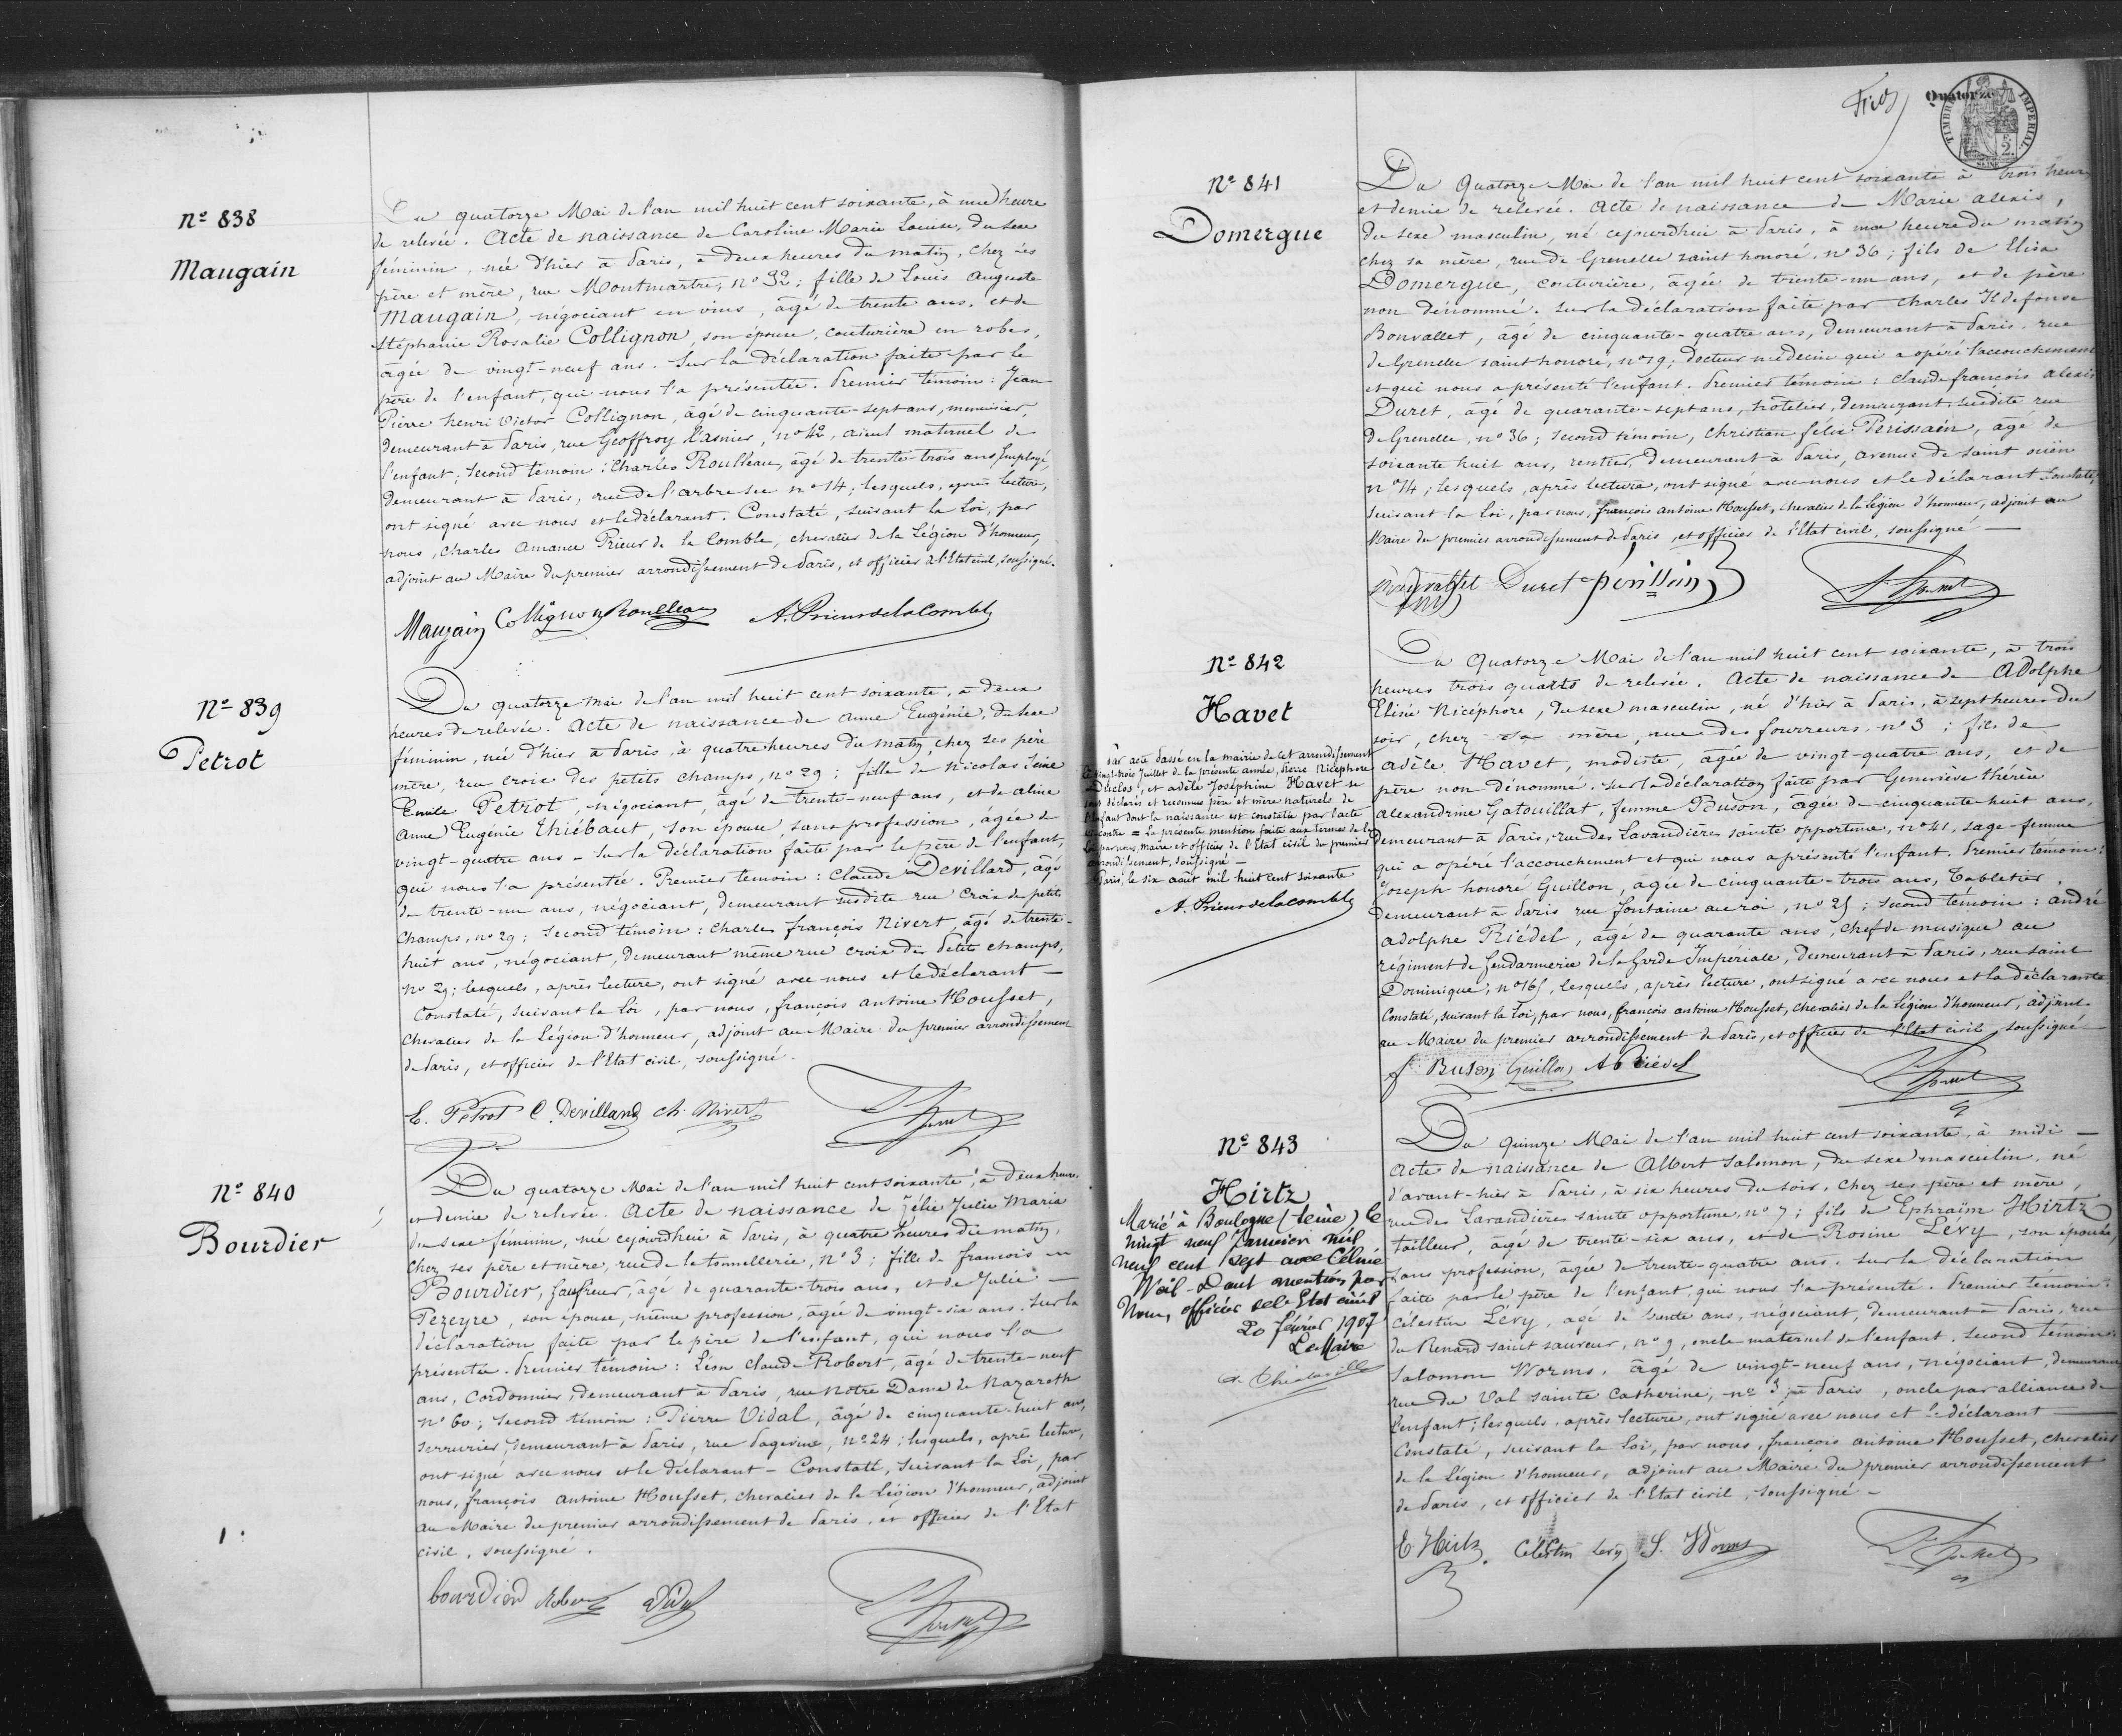 Nº 838
Maugain
Du quatorze Mai de l'an mil huit cent soixante, à une heure
de relevée. Acte de naissance de Caroline Marie Louise, du sexe
féminin, née d'hier à Paris, à deux heures du matin, chez ses
père et mère, rue Montmartre, nº 32; fille de Louis Auguste
Maugain, négociant en vins, âgé de trente ans, et de
Stéphanie Rosalie Collignon, son épouse, couturière en robes,
âgée de vingt-neuf ans. Sur la déclaration faite par le
père de l'enfant, qui nous l'a présentée. Premier témoin: Jean
Pierre henri Victor Collignon, âgé de cinquante-sept ans, menuisier,
demeurant à Paris, rue Geoffroy l'asnier, nº 42, aïeul maternel de
l'enfant; Second témoin: Charles Roulleau, âgé de trente-trois ans, Employé,
demeurant à Paris, rue de l'arbre sec nº 14; lesquels, après lecture,
ont signé avec nous et le déclarant. Constaté, suivant la Loi, par
nous, Charles Amance Prieur de la Comble, chevalier de la Légion d'honneur,
adjoint au Maire du premier arrondissement de Paris, et officier de l'Etat civil, soussigné.
Maugain Collignon Roulleau A. Prieur de la Comble
Nº 839
Petrot
Du quatorze Mai de l'an mil huit cent soixante, à deux
heures de relevée. Acte de naissance de Anne Eugénie, du sexe
féminin, née d'hier à Paris, à quatre heures du matin, chez ses père
mère, rue croix des petits champs, nº 29; fille de Nicolas
Emile Petrot, négociant, âgé de trente-neuf ans, et de aline
Anne Eugénie Thiébaut, son épouse, sans profession, âgée de
vingt-quatre ans - Sur la déclaration faite par le père de l'enfant,
qui nous l'a présentée. Premier témoin: Claude Devillard, âgé
de trente-un ans, négociant, demeurant susdite rue Croix des petits
Champs, nº 29; Second témoin: Charles françois Nivert, âgé de trente-
huit ans, négociant, demeurant même rue croix des Petits champs,
nº 29; lesquels, après lecture, ont signé avec nous et le déclarant -
Constaté, suivant la Loi, par nous, françois antoine Housset,
Chevalier de la Légion d'honneur, adjoint au Maire du premier arrondissement
de Paris, et officier de l'Etat civil, soussigné.
E. Petrot C. Devillard Ch. Nivert
Nº 840
Bourdier
Du quatorze Mai de l'an mil huit cent soixante, à deux heures
et demie de relevée. Acte de naissance de Zélie Julie Maria
du sexe féminin, née cejourd'hui à Paris, à quatre heures du matin,
Chez ses père et mère, rue de la tonnellerie, nº 3; fille de françois
Bourdier, gaufreur, âgé de quarante-trois ans, et de Julie -
Pezeyre, son épouse, même profession, âgée de vingt-six ans. Sur la
déclaration faite par le père de l'enfant, qui nous l'a
présentée. Premier témoin: Léon Claude Robert, âgé de trente-neuf
ans, Cordonnier, demeurant à Paris, rue Notre Dame de Nazareth
nº 60; Second témoin: Pierre Vidal, âgé de cinquante-huit ans,
serrurier, demeurant à Paris, rue Pagevine, nº 24; lesquels, après lecture,
ont signé avec nous et le déclarant - Constaté, suivant la Loi, par
nous, françois Antoine Housset, chevalier de la Légion d'honneur, adjoint
au Maire du premier arrondissement de Paris, et officier de l'Etat
civil, soussigné.
bourdier Robert Vidal
Quatorze
TIMBRE IMPERIAL
SEINE
Nº 841
Domergue
Du Quatorze Mai de l'an mil huit cent soixante à trois heures
et demie de relevée. Acte de naissance de Marie alexis,
du sexe masculin, né cejourd'hui à Paris, à une heure du matin
chez sa mère, rue de Grenelle saint honoré, nº 36; fils de Elisa
Domergue, couturière, âgée de trente-un ans, et de père
non dénommé. Sur la déclaration faite par Charles Ildefonse
Bonvallet, âgé de cinquante-quatre ans, demeurant à Paris, rue
de Grenelle saint honoré, nº 19; docteur médecin qui a opéré l'accouchement
et qui nous a présenté l'enfant. Premier témoin: Claude françois alexis
Duret, âgé de quarante-sept ans, hôtelier, demeurant susdite rue
de Grenelle, nº 36; Second témoin, Christian félix Périssain, âgé de
soixante huit ans, rentier, demeurant à Paris, avenue de Saint ouën
nº 14; lesquels, après lecture, ont signé avec nous et le déclarant Constaté,
suivant la Loi, par nous, françois antoine Housset, chevalier de la Légion d'honneur, adjoint au
Maire du premier arrondissement de Paris, et officier de l'Etat civil, soussigné -
Duret
Nº 842
Havet
Par acte passé en la mairie de cet arrondissement
le vingt-trois Juillet de la présente année, Pierre Nicéphore
Duclos, et adèle Joséphine Havet se
sont déclarés et reconnus père et mère naturels de
l'enfant dont la naissance est constatée par l'acte
ci-contre = la présente mention faite aux termes de la
Loi par nous, Maire et officier de l'Etat civil du premier
arrondissement, soussigné -
Paris, le six août mil huit cent soixante
A. Prieur de la comble
Du Quatorze Mai de l'an mil huit cent soixante, à trois
heures trois quarts de relevée. Acte de naissance de Adolphe
Elisée Nicéphore, du sexe masculin, né d'hier à Paris, à sept heures du
soir, chez sa mère, rue des fourreurs, nº 3; fils de
adèle Havet, modiste, âgée de vingt-quatre ans, et de
père non dénommé. Sur la déclaration faite par Geneviève thérèse
alexandrine Gatouillat, femme Buson, âgée de cinquante huit ans,
demeurant à Paris, rue des Lavandières sainte opportune, nº 41, sage-femme
qui a opéré l'accouchement et qui nous a présenté l'enfant. Premier témoin:
Joseph honoré Guillon, âgé de cinquante-trois ans, Tabletier,
demeurant à Paris rue fontaine au roi, nº 25; Second témoin: andré
adolphe Riédel, âgé de quarante ans, chef de musique au
régiment de Gendarmerie de la Garde Impériale, demeurant à Paris, rue saint
Dominique, nº 165, lesquels, après lecture, ont signé avec nous et la déclarante
Constaté, suivant la Loi, par nous, françois antoine Housset, chevalier de la Légion d'honneur, adjoint
au Maire du premier arrondissement de Paris, et officier de l'Etat civil, soussigné
f. Buson Guillon A Riédel
Nº 843
Hirtz
Marié à Boulogne (Seine) le
vingt neuf janvier mil
neuf cent sept avec Céline
Weil - Dont mention par
Nous, officier de l'Etat civil
20 février 1907
Le Maire
Du quinze Mai de l'an mil huit cent soixante, à midi -
Acte de naissance de Albert Salomon, du sexe masculin, né
d'avant-hier à Paris, à six heures du soir, chez ses père et mère,
rue des Lavandières sainte opportune, nº 7; fils de Ephraïm Hirtz
tailleur, âgé de trente-six ans, et de Rosine Lévy, son épouse,
sans profession, âgée de trente-quatre ans. Sur la déclaration
faite par le père de l'enfant, qui nous l'a présenté. Premier témoin:
Célestin Lévy, âgé de trente ans, négociant, demeurant à Paris, rue
du Renard saint sauveur, nº 9, oncle maternel de l'enfant. Second témoin:
Salomon Worms, âgé de vingt-neuf ans, négociant, demeurant
rue du Val sainte Catherine, nº 3, à Paris, oncle par alliance de
l'enfant; lesquels, après lecture, ont signé avec nous et le déclarant -
Constaté, suivant la Loi, par nous, françois antoine Housset, chevalier
de la Légion d'honneur, adjoint au Maire du premier arrondissement
de Paris, et officier de l'Etat civil, soussigné -
E. Hirtz Célestin Lévy S. Worms